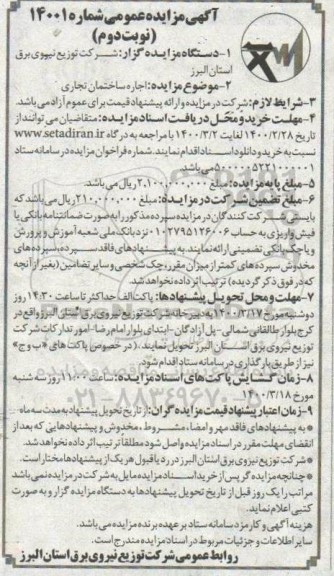 آگهی مزایده عمومی شماره ۱۴۰۰۱
(نوبت دوم)
۱- دستگاه مزایده گزار: شرکت توزیع نیروی برق
استان البرز
۲-موضوع مزایده: اجاره ساختمان تجاری
۳-شرایط لازم: شرکت در مزایده و ارائه پیشنهاد قیمت برای عموم آزاد می باشد.
۴-مهلت خرید و محل دریافت اسناد مزایده: متقاضیان می توانند از
تاریخ ۱۴۰۰/۲/۲۸ لغایت ۱۴۰۰/۳/۲ با مراجعه به درگاه www.setadiran.ir
نسبت به خرید و دانلود اسناد اقدام نمایند. شماره فراخوان مزایده در سامانه ستاد
می باشد.
۵-مبلغ پایه مزایده: مبلغ ۲,۱۰۰,۰۰۰,۰۰۰ ریال می باشد.
۶-مبلغ تضمین شرکت در مزایده: مبلغ ۲۱۰,۰۰۰,۰۰۰ ریال می باشد که
بایستی شرکت کنندگان در مزایده سپرده مذکور را به صورت ضمانتنامه بانکی یا
فیش واریزی به حساب ۰۱۰۲۷۹۵۱۲۶۰۰۶ نزد بانک ملی شعبه آموزش و پرورش
و یا چک بانکی تضمینی ارائه نمایند. به پیشنهادهای فاقد سپرده، سپرده های
مخدوش سپرده های کمتر از میزان مقرر، چک شخصی و سایر تضامین (بغیر از آنچه
که در فوق ذکر گردیده) ترتیب اثر داده نخواهد شد.
۷-مهلت و محل تحویل پیشنهادها: پاکت الف حداکثر تا ساعت ۱۴:۳۰ روز
دوشنبه مورخ ۱۴۰۰/۳/۱۷ به دبیرخانه شرکت توزیع نیروی برق استان البرز واقع در
کرج بلوار طالقانی شمالی - پل آزادگان - ابتدای بلوار امام رضا - امور تدارکات شرکت
توزیع نیروی برق استان البرز تحویل نمایند. (در خصوص پاکت های «ب و ج»
نیز از طریق بارگذاری در سامانه ستاد اقدام شود.
۸-زمان گشایش پاکت های اسناد مزایده: ساعت ۱۱:۰۰ روز سه شنبه
مورخ ۱۴۰۰/۳/۱۸
۹-زمان اعتبار پیشنهاد قیمت مزایده گران: از تاریخ تحویل پیشنهاد به مدت سه ماه
* به پیشنهادهای فاقد مهر و امضاء، مشروط، مخدوش و پیشنهادهایی که بعد از
انقضای مهلت مقرر در اسناد مزایده واصل شود مطلقا ترتیب اثر داده نخواهد شد.
* شرکت توزیع نیروی برق استان البرز در رد یا قبول هر یک از پیشنهادها مختار است.
* چنانچه مزایده گر پس از خرید اسناد مزایده مایل به شرکت در مزایده نمی باشد
مراتب را یک روز قبل از تاریخ تحویل پیشنهادها به دستگاه مزایده گزار و به صورت
کتبی اعلام نماید.
هزینه آگهی و کارمزد سامانه ستاد بر عهده برنده مزایده می باشد.
سایر اطلاعات و جزئیات مربوط در اسناد مزایده مندرج است.
روابط عمومی شرکت توزیع نیروی برق استان البرز
۰۲۱-۸۸۳۴۹۶۷۰-۵